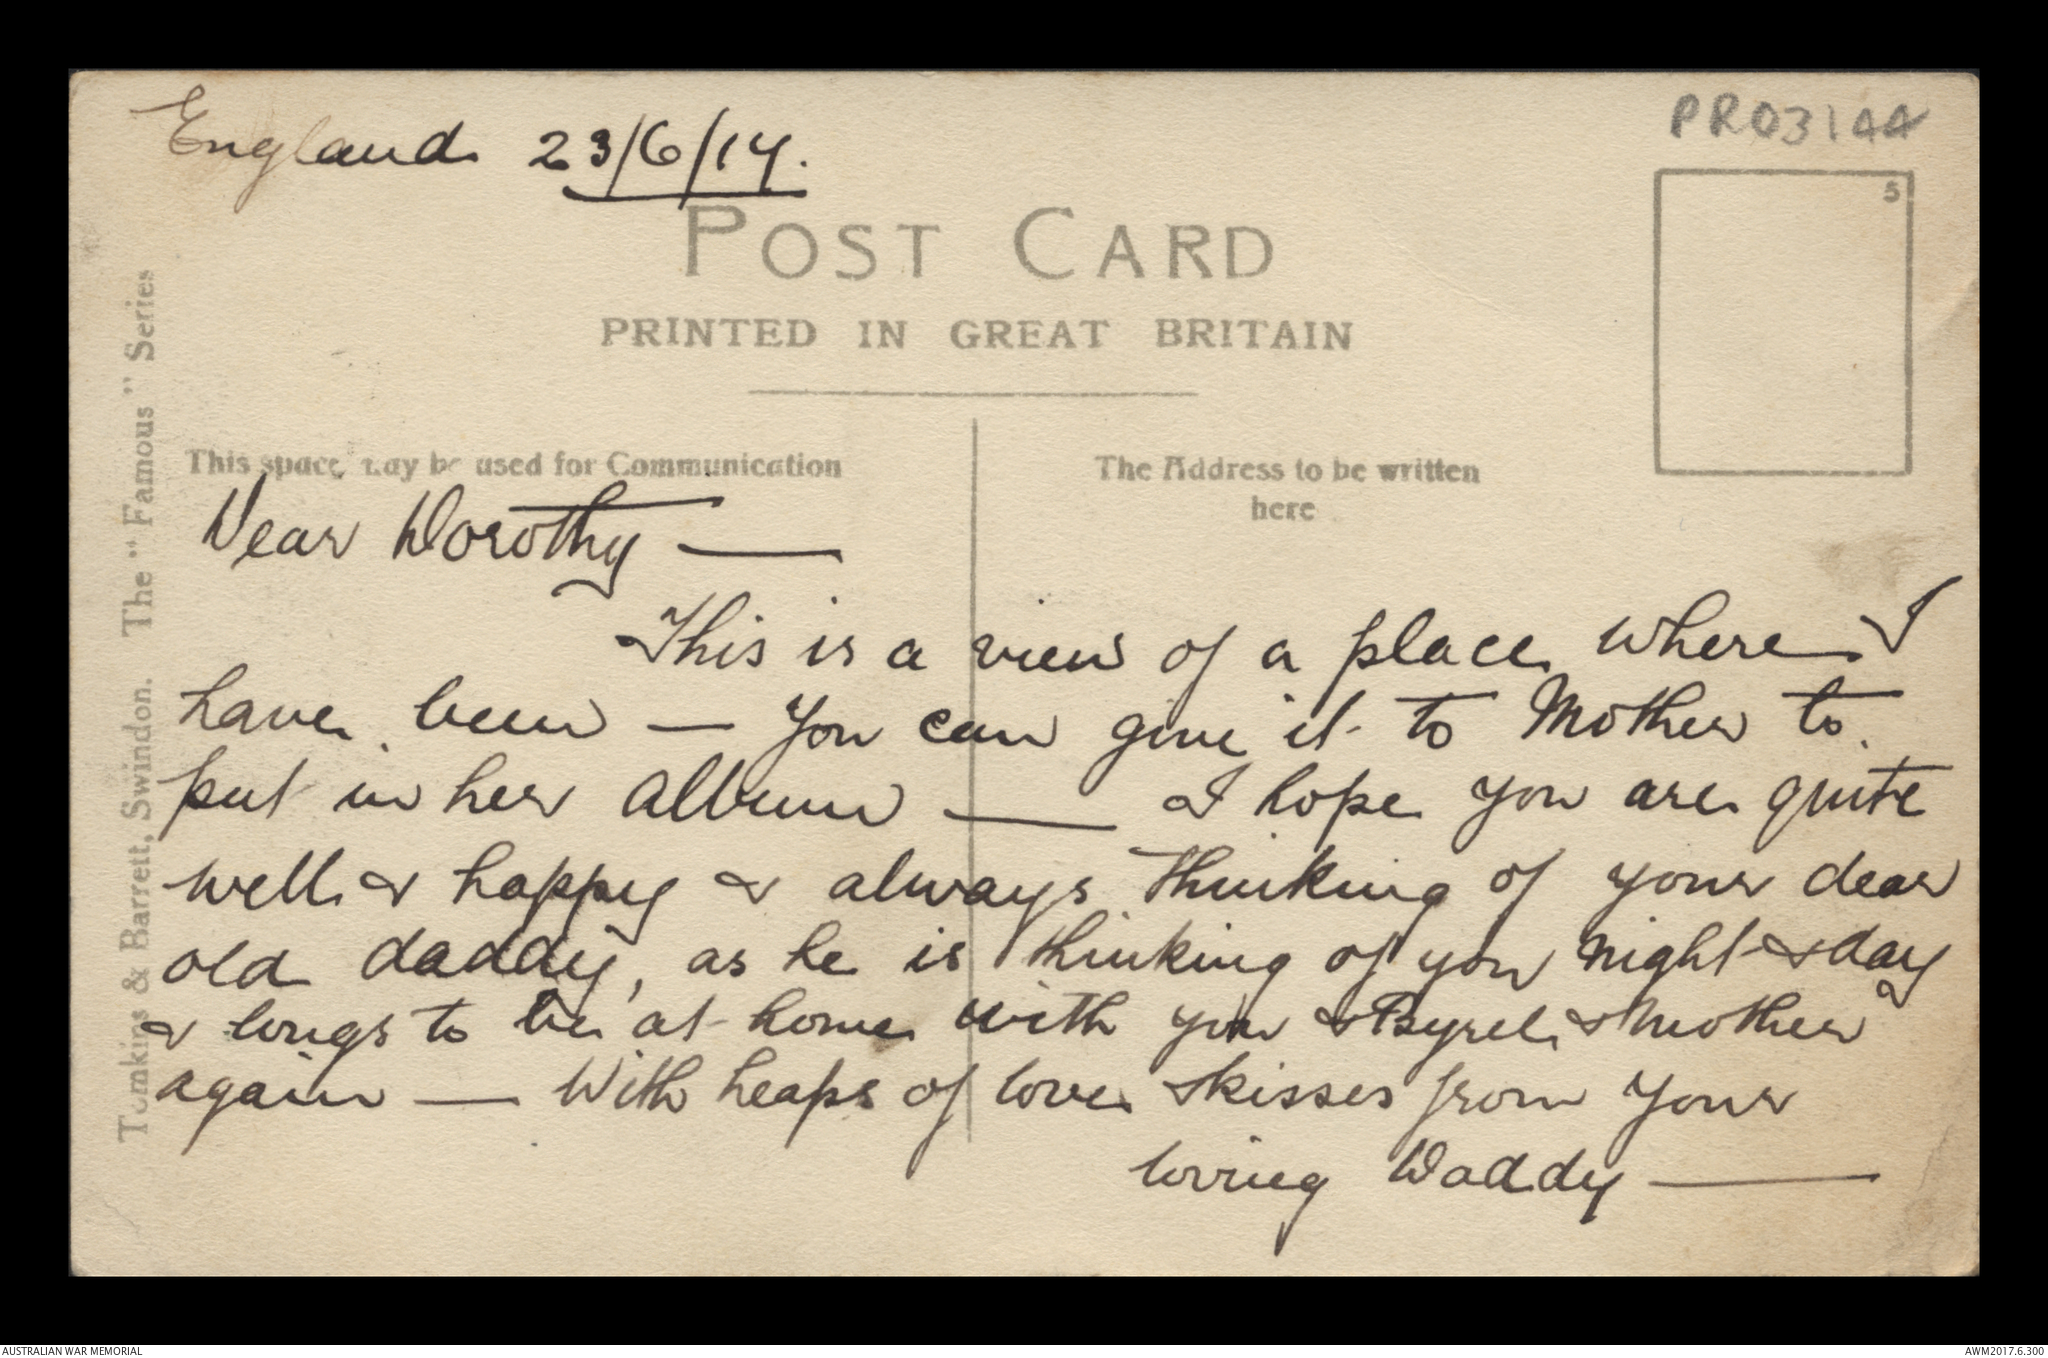 England 23/6/17.
PR03144
5
POST CARD
PRINTED IN GREAT BRITAIN
This space may be used for Communication
The Address to be written
here
Tomkins & Barrett, Swindon. The "Famous" Series
Dear Dorothy —
This is a view of a place where I
have been — You can give it to Mother to
put in her album — I hope you are quite
well & happy & always thinking of your dear
old daddy, as he is thinking of you night & day
& longs to be at home with you & Byrel & Mother
again — With heaps of love & kisses from Your
loving Daddy —
AUSTRALIAN WAR MEMORIAL
AWM2017.6.300